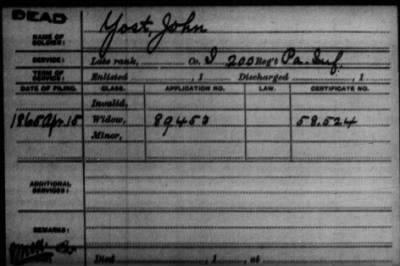 DEAD
NAME OF SOLDIER: Yost, John
SERVICE: Late rank, Co. I 200 Reg't Pa. Inf.
TERM OF SERVICE: Enlisted , 1 Discharged , 1
DATE OF FILING. CLASS. APPLICATION NO. LAW. CERTIFICATE NO.
Invalid,
1865 Apr. 18 Widow, 89450 58.524
Minor,
ADDITIONAL SERVICES:
REMARKS:
Died , 1 , at